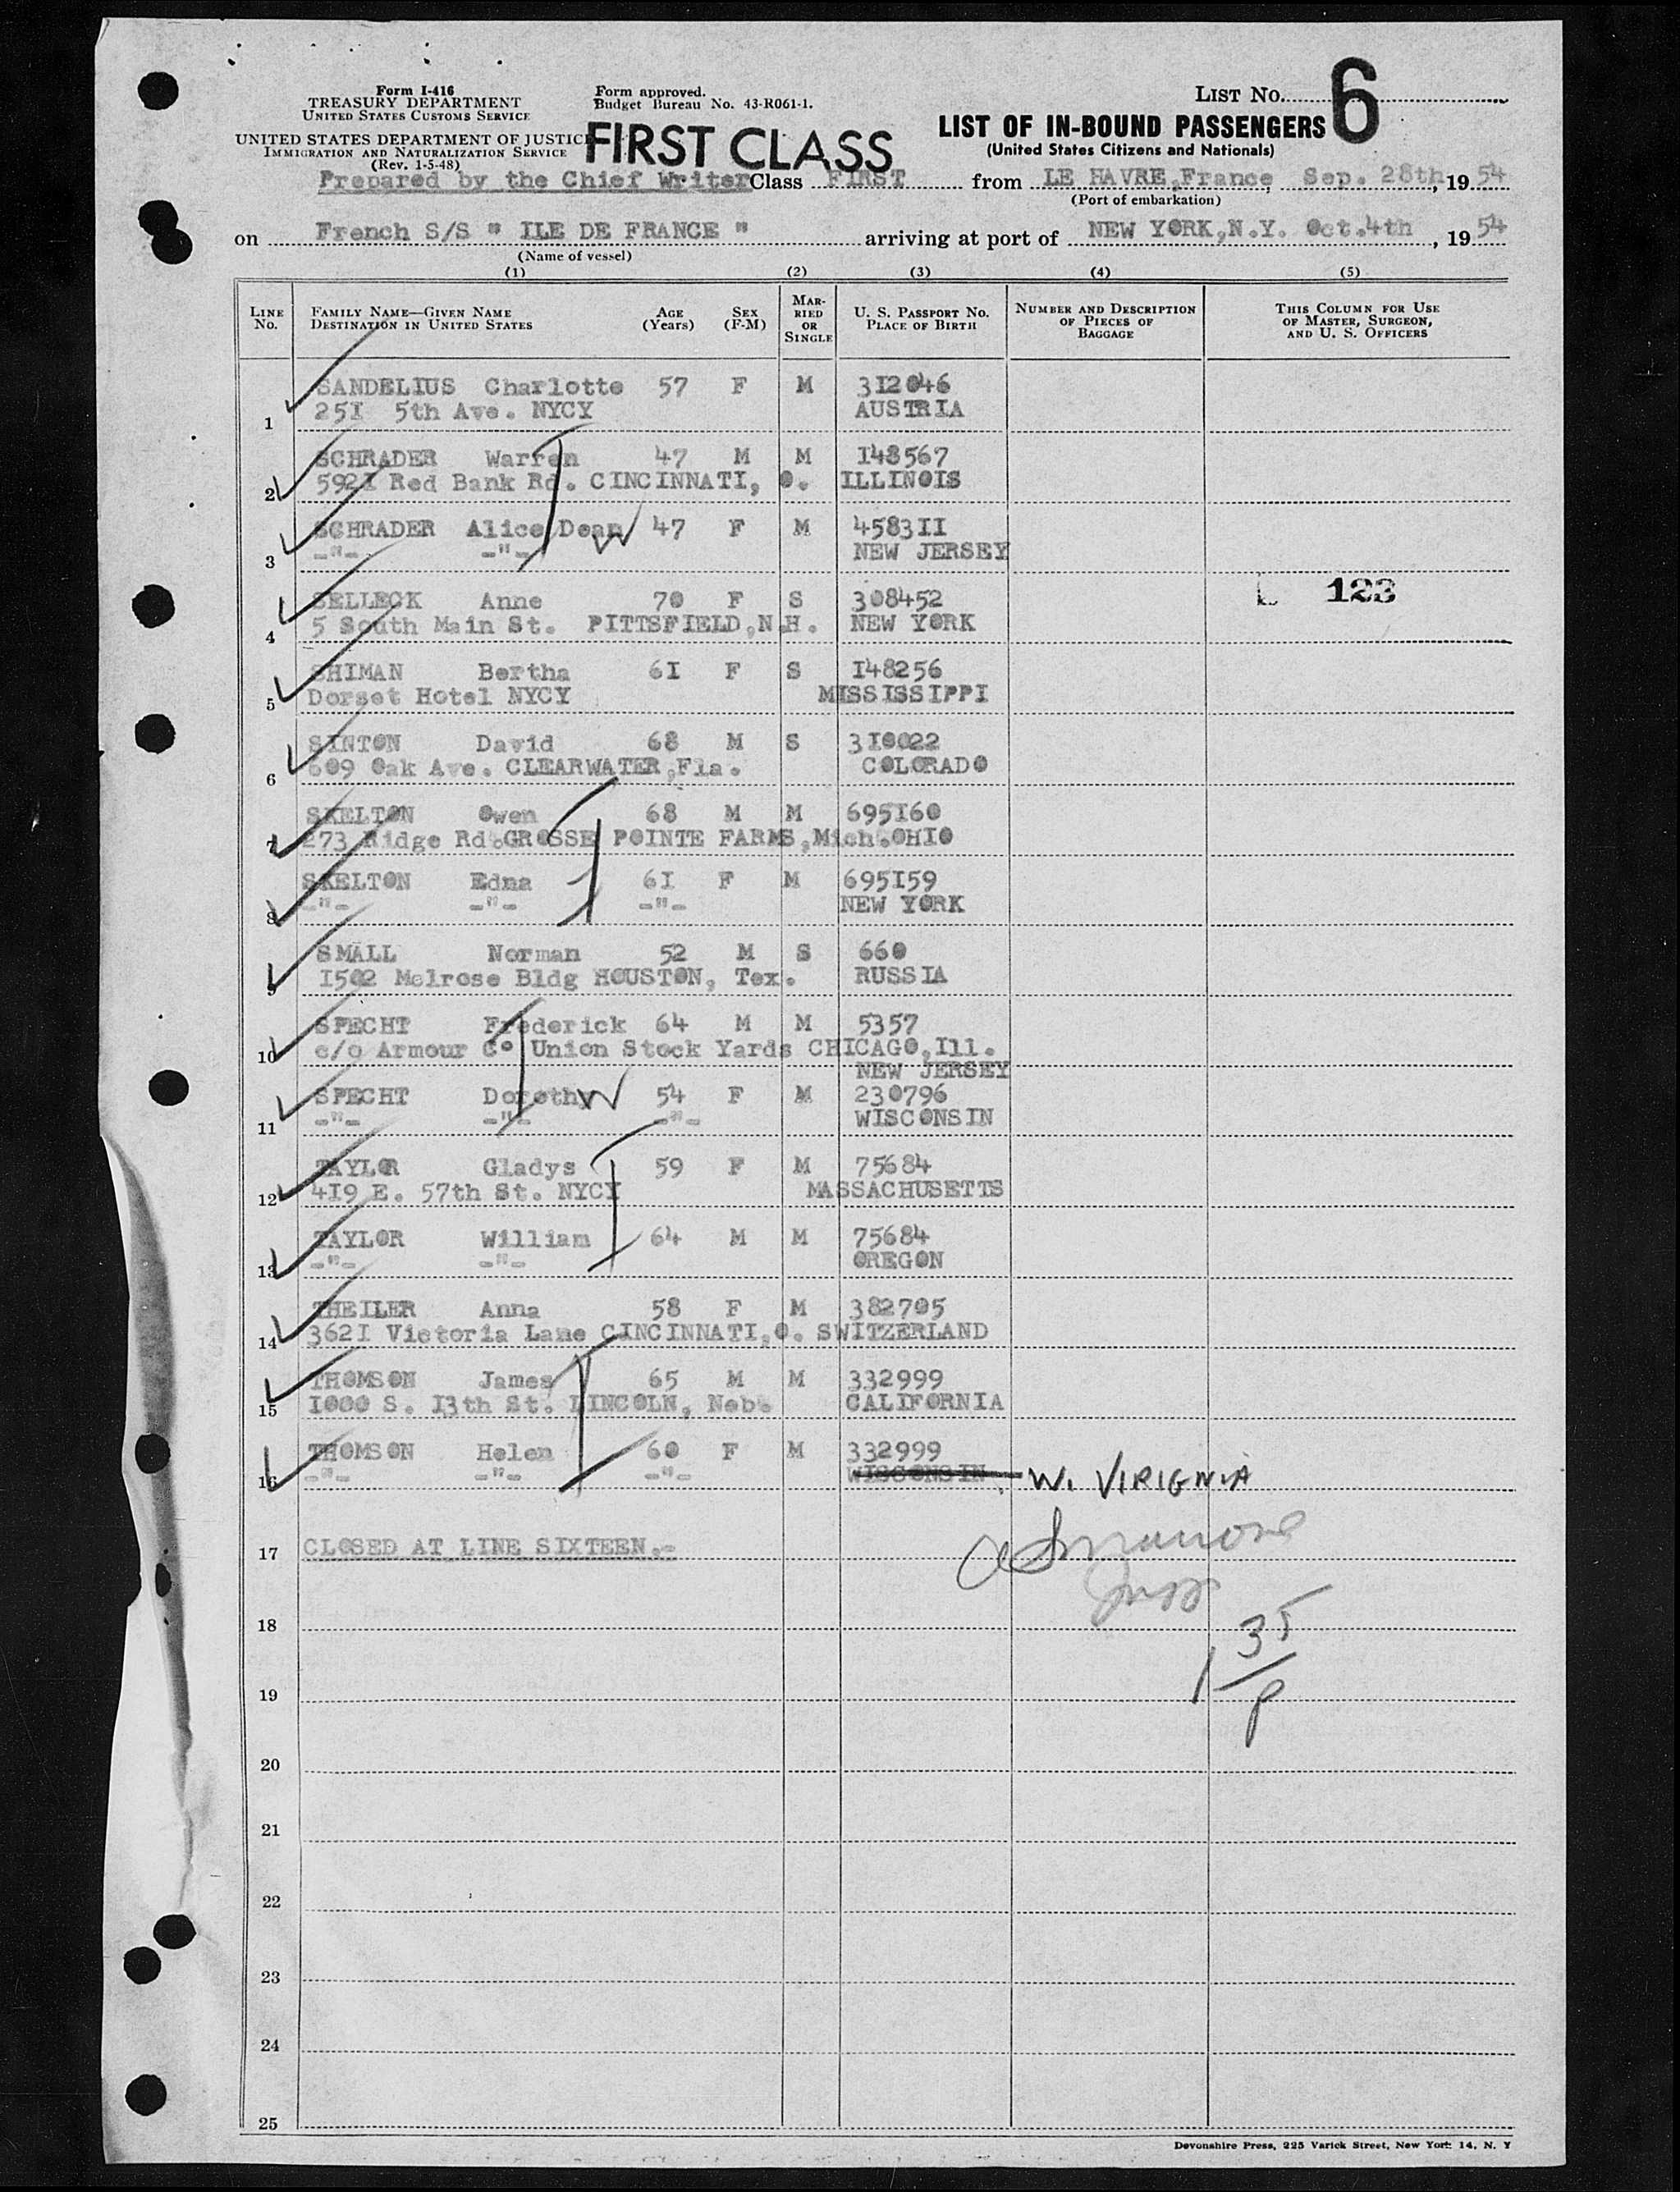 Form I-416
TREASURY DEPARTMENT
UNITED STATES CUSTOMS SERVICE
UNITED STATES DEPARTMENT OF JUSTICE
IMMIGRATION AND NATURALIZATION SERVICE
(Rev. 1-5-48)
Form approved.
Budget Bureau No. 43-R061-1.
FIRST CLASS
LIST NO. 6
LIST OF IN-BOUND PASSENGERS
(United States Citizens and Nationals)
Prepared by the Chief Writer Class FIRST from LE HAVRE,France, Sep. 28th, 19 54
(Port of embarkation)
on French S/S " ILE DE FRANCE " arriving at port of NEW YORK,N.Y. Oct.4th, 19 54
(Name of vessel)
(1) (2) (3) (4) (5)
LINE No. FAMILY NAME—GIVEN NAME DESTINATION IN UNITED STATES AGE (Years) SEX (F-M) MARRIED OR SINGLE U. S. PASSPORT NO. PLACE OF BIRTH NUMBER AND DESCRIPTION OF PIECES OF BAGGAGE THIS COLUMN FOR USE OF MASTER, SURGEON, AND U. S. OFFICERS
SANDELIUS Charlotte 57 F M 312046
1 251 5th Ave. NYCY AUSTRIA
SCHRADER Warren 47 M M 148567
2 5921 Red Bank Rd. CINCINNATI, O. ILLINOIS
SCHRADER Alice Dean W 47 F M 458311
3 -"- -"- NEW JERSEY
SELLECK Anne 70 F S 308452 123
4 5 South Main St. PITTSFIELD,N.H. NEW YORK
SHIMAN Bertha 61 F S 148256
5 Dorset Hotel NYCY MISSISSIPPI
SINTON David 68 M S 310022
6 609 Oak Ave. CLEARWATER,Fla. COLORADO
SKELTON Owen 68 M M 695160
7 273 Ridge Rd.GROSSE POINTE FARMS,Mich.OHIO
SKELTON Edna 61 F M 695159
8 -"- -"- -"- NEW YORK
SMALL Norman 52 M S 660
9 1502 Melrose Bldg HOUSTON, Tex. RUSSIA
SPECHT Frederick 64 M M 5357
10 c/o Armour Co Union Stock Yards CHICAGO,Ill.
NEW JERSEY
SPECHT Dorothy W 54 F M 230796
11 -"- -"- -"- WISCONSIN
TAYLOR Gladys 59 F M 75684
12 419 E. 57th St. NYCY MASSACHUSETTS
TAYLOR William 64 M M 75684
13 -"- -"- OREGON
THEILER Anna 58 F M 382705
14 3621 Victoria Lane CINCINNATI,O. SWITZERLAND
THOMSON James 65 M M 332999
15 1000 S. 13th St. LINCOLN, Neb. CALIFORNIA
THOMSON Helen 60 F M 332999
16 -"- -"- -"- WISCONSIN W. VIRIGNIA
17 CLOSED AT LINE SIXTEEN.-
18
35
19
P
20
21
22
23
24
25
Devonshire Press, 225 Varick Street, New York 14, N. Y